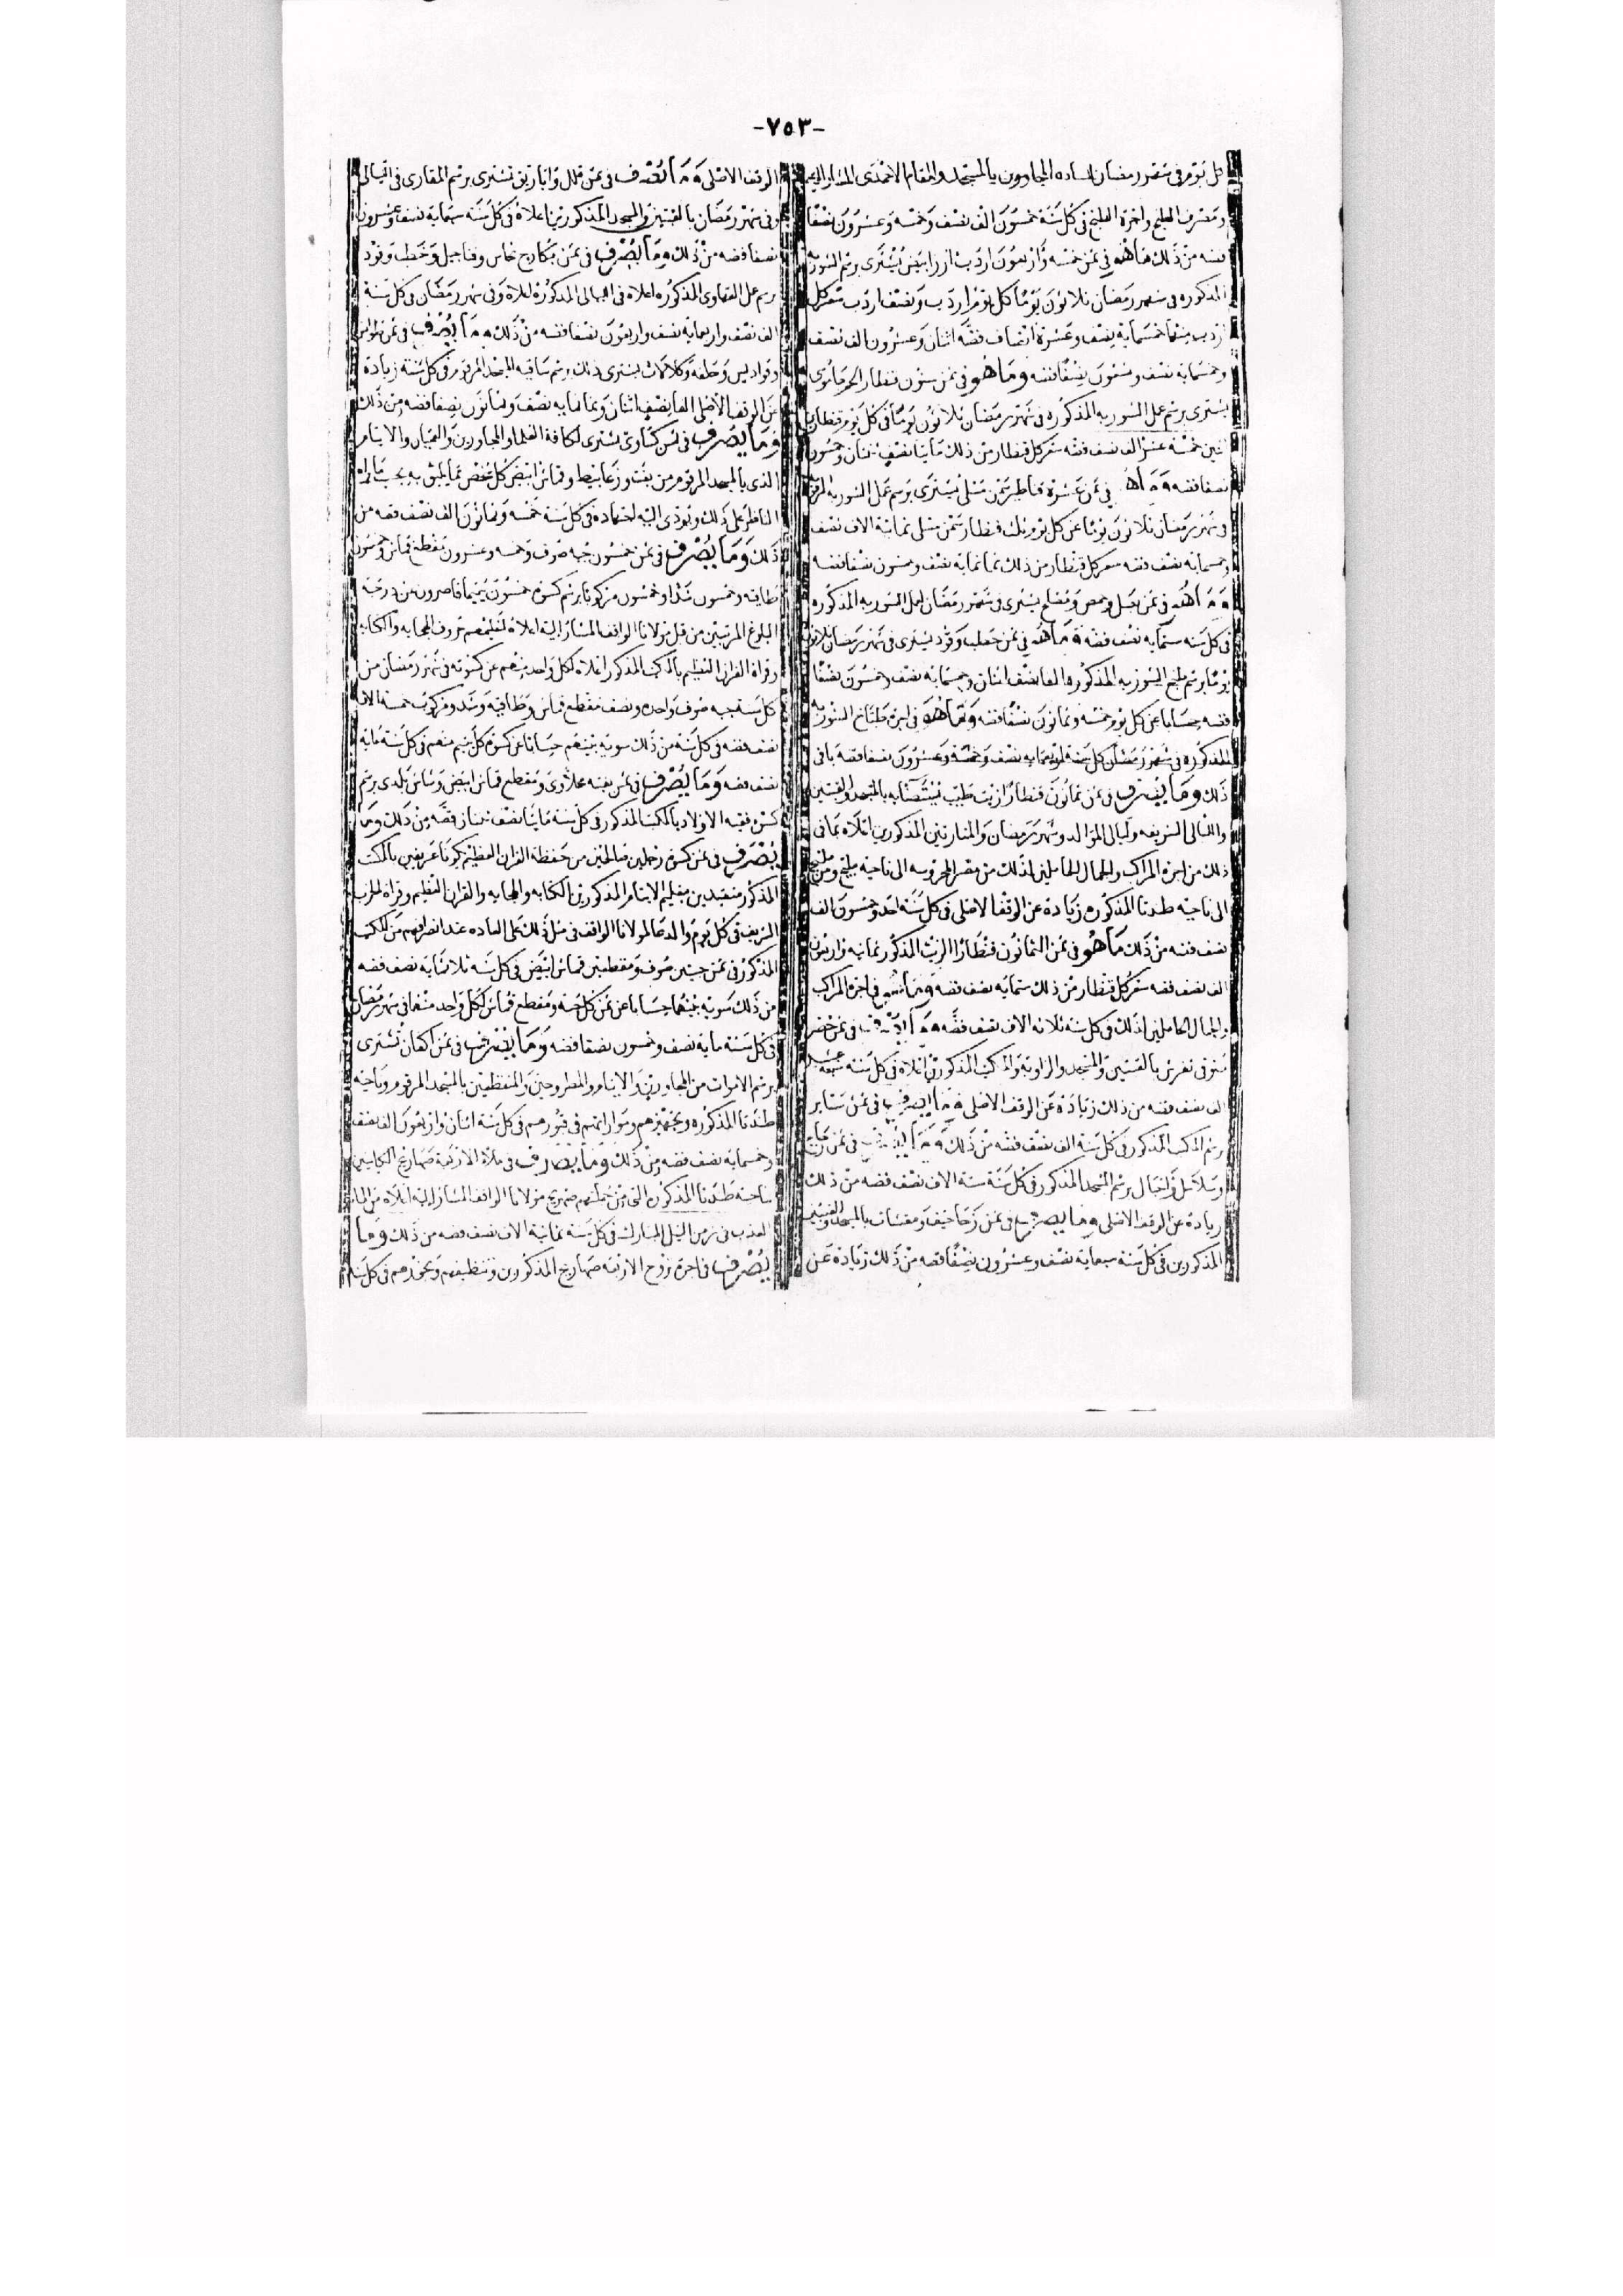 -٧٥٣-
كل يوم فى شهر رمضان لساده المجاورون بالمسجد والمقام الاحمدى المشار اليه
ومصرف الطبخ واجرة الطبخ فى كل سنة خمسون الف نصف وخمسه وعشرون نصفا
فضه من ذلك ماهو فى ثمن خمسه واربعون اردب ارز ابيض يشترى برسم الشوربه
المذكوره فى شهر رمضان ثلاثون يوما كل يوم اردب ونصف اردب سعر كل
اردب منها خمسماية نصف وعشرة انصاف فضه اثنان وعشرون الف نصف
وخمسمايه نصف نصفا فضه وماهو فى ثمن ستون قنطار لحم
يشترى برسم عمل الشوربه المذكوره فى شهر رمضان ثلاثون يوما فى كل يوم قنطارين
اثنين خمسة عشر الف نصف فضه سعر كل قنطار من ذلك مايتا نصف اثنان وخمسون
نصفا فضه وماهو فى ثمن عشرة قناطير سمن مسلى يشترى برسم عمل الشوربه
فى شهر رمضان ثلاثون يوما عن كل يوم ثلث قنطار سمن مسلى ثمانية الاف نصف
وخمسمايه نصف فضه سعر كل قنطار من ذلك ثمانمايه نصف وخمسون نصفا فضه
وماهو فى ثمن بصل وحمص وملح يشترى فى شهر رمضان لعمل الشوربه المذكوره
فى كل سنه ستمايه نصف فضه وماهو فى ثمن حطب وقود يشترى فى شهر رمضان ثلاثون
يوما برسم طبخ الشوربه المذكوره الفا نصف اثنان وخمسمايه نصف وخمسون نصفا
فضه حسابا عن كل يوم خمسه وثمانون نصفا فضه وماهو فى اجرة طباخ الشوربه
المذكوره فى شهر رمضان كل سنة نصف وخمسة وعشرون نصفا فضه باقى
ذلك وما يصرف فى ثمن ثمانون قنطارا زيت طيب يستضابه بالمسجد والقبتين
والليالى الشريفه وليالى الموالد وشهر رمضان والمنارتين المذكورين اعلاه بما فى
ذلك من اجرة المراكب والجمال الحاملين لذلك من مصر المحروسه الى ناحية مليج ومن مليج
الى ناحية طندتا المذكوره زيادة عن الوقف الاصلى فى كل سنة احد وخمسون الف
نصف فضه من ذلك ماهو فى ثمن الثمانون قنطارا الزيت المذكور ثمانية واربعون
الف نصف فضه سعر كل قنطار من ذلك ستمايه نصف فضه وماهو فى اجرة المراكب
والجمال الحاملين لذلك فى كل سنة ثلاثه الاف نصف فضه وما يصرف فى ثمن حصر
تفرش بالقبتين والمسجد والزاوية والمكتب المذكورين اعلاه فى كل سنة سبعة عشر
الف نصف فضه من ذلك زيادة عن الوقف الاصلى وما يصرف فى ثمن ستاير
برسم المكتب المذكور فى كل سنة الف نصف فضه من ذلك وما يصرف فى ثمن
وسلاسل وحبال برسم المسجد المذكور فى كل سنة ستة الاف نصف فضه من ذلك
زيادة عن الوقف الاصلى وما يصرف فى ثمن زحاحيف ومقشات بالمسجد والقبتين
المذكورين فى كل سنة سبعماية نصف وعشرون نصفا فضه من ذلك زيادة عن
الوقف الاصلى وما يصرف فى ثمن قلل واباريق تشترى برسم المقارى فى الليالى
وفى شهر رمضان بالقبتين والمسجد المذكورين اعلاه فى كل سنة ستماية نصف وعشرون
نصفا فضه من ذلك وما يصرف فى ثمن بكارج نحاس وفناجيل وحطب وقود
برسم عمل القهاوى المذكوره اعلاه فى الليالى المذكورة اعلاه وفى شهر رمضان فى كل سنة
الف نصف واربعماية نصف واربعون نصفا فضه من ذلك وما يصرف فى ثمن
وقواديس وحلفة يشترى ذلك برسم ساقية المسجد المرقوم فى كل سنة زيادة
عن الوقف الاصلى الفا نصف اثنان وثمانمايه نصف وثمانون نصفا فضه من ذلك
وما يصرف فى ثمن كساوى تشترى لكافة العلما والمجاورين والعميان والايتام
الذى بالمسجد المرقوم من بفت وزعابيط وقماش ابيض كل شخص بما يليق به بحسب مايراه
الناظر على ذلك ويودى اليه اجتهاده فى كل سنة خمسه وثمانون الف نصف فضه من
ذلك وما يصرف فى ثمن خمسون جبه صوف وخمسه وعشرون مقطع قماش وخمسون
طاقيه وخمسون شدا وخمسون مركوبا برسم كسوة خمسون يتيما قاصرون عن درجة
البلوغ المرتبين من قبل مولانا الواقف المشار اليه اعلاه لتعليمهم حروف الهجايه والكتابه
وقراة القران العظيم بالمكتب المذكور اعلاه لكل واحد منهم عن كسوته فى شهر رمضان من
كل سنة جبه صوف واحده ونصف مقطع قماش وطاقيه وشد ومركوب خمسة الاف
نصف فضه فى كل سنة من ذلك سوية بينهم حسابا عن كسوة كل يتيم منهم فى كل سنة ماية
نصف فضه وما يصرف فى ثمن بفته علاوى ومقطع قماش ابيض وشاش بلدى برسم
كسوة فقيه الاولاد بالمكتب المذكور فى كل سنة مايتا نصف اثنان فضه من ذلك وما
يصرف فى ثمن كسوة رجلين صالحين من حفظة القران العظيم يكونا عريفين بالمكتب
المذكور متقيدين بتعليم الايتام المذكورين الكتابه والهجايه والقران العظيم وقراة الحزب
الشريف فى كل يوم والدعا لمولانا الواقف فى مثل ذلك على العاده عند انصرافهم من المكتب
المذكور فى ثمن جبتين صوف ومقطعين قماش ابيض فى كل سنه ثلاثمايه نصف فضه
من ذلك سوية بينهما حسابا عن ثمن كل جبة ومقطع قماش لكل واحد منهما فى شهر رمضان
فى كل سنة ماية نصف وخمسون نصفا فضه وما يصرف فى ثمن اكفان تشترى
برسم الاموات من المجاورين والايتام والمطروحين والمنقطعين بالمسجد المرقوم وناحية
طندتا المذكوره وتجهيزهم ومواراتهم فى قبورهم فى كل سنة اثنان واربعون الف نصف
وخمسمايه نصف فضه من ذلك وما يصرف فى ملاة الاربعة صهاريج الكاينين
بناحية طندتا المذكوره التى من جملتهم صهريج مولانا الواقف المشار اليه اعلاه من الما
العذب فى زمن النيل المبارك فى كل سنة ثمانية الاف نصف فضه من ذلك وما
يصرف فى اجرة نزوح الاربعة صهاريج المذكورين وتنظيفهم وبخورهم فى كل سنة